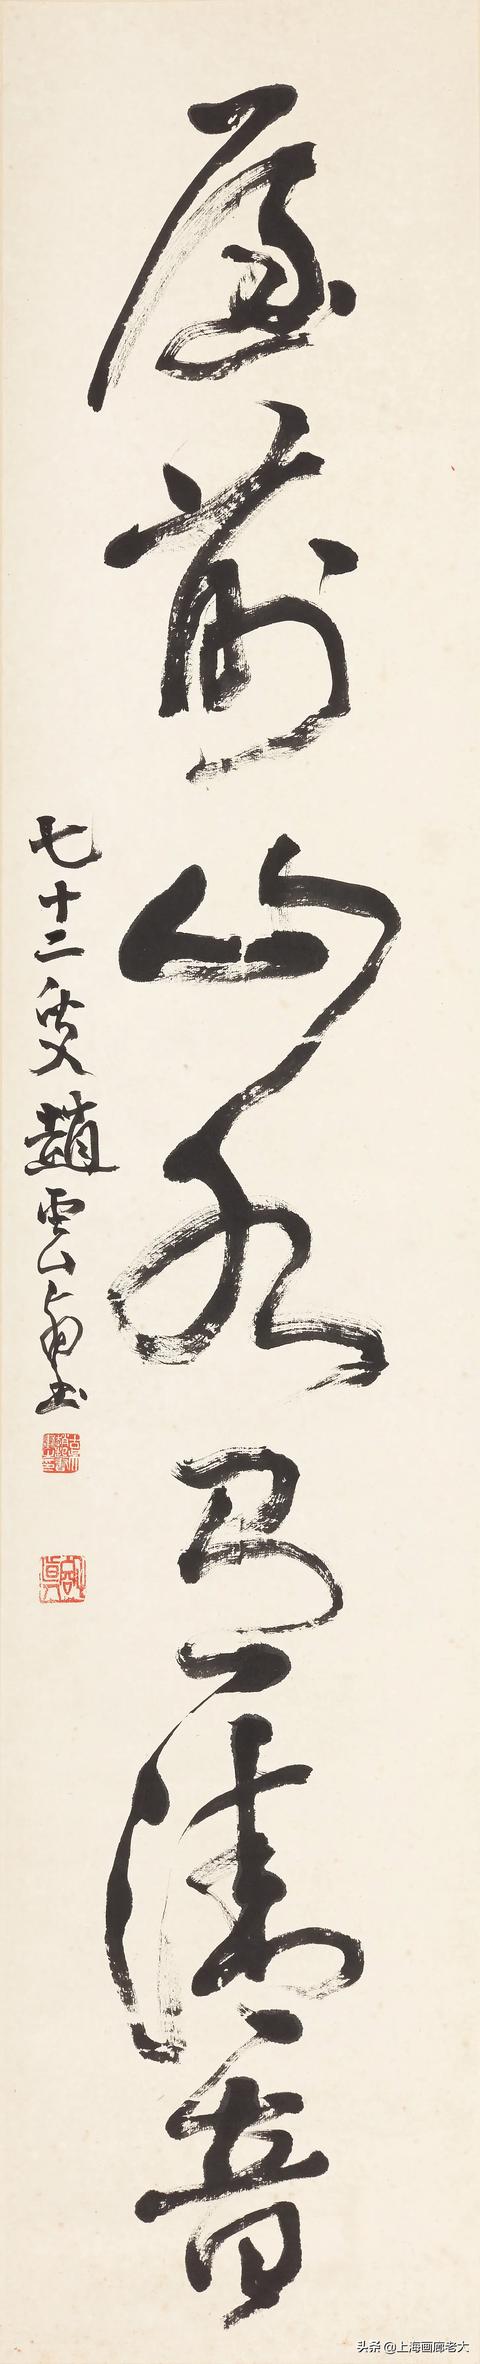 屋前山水有清音
七十二叟趙雲山翁書
头条 @上海画廊老大